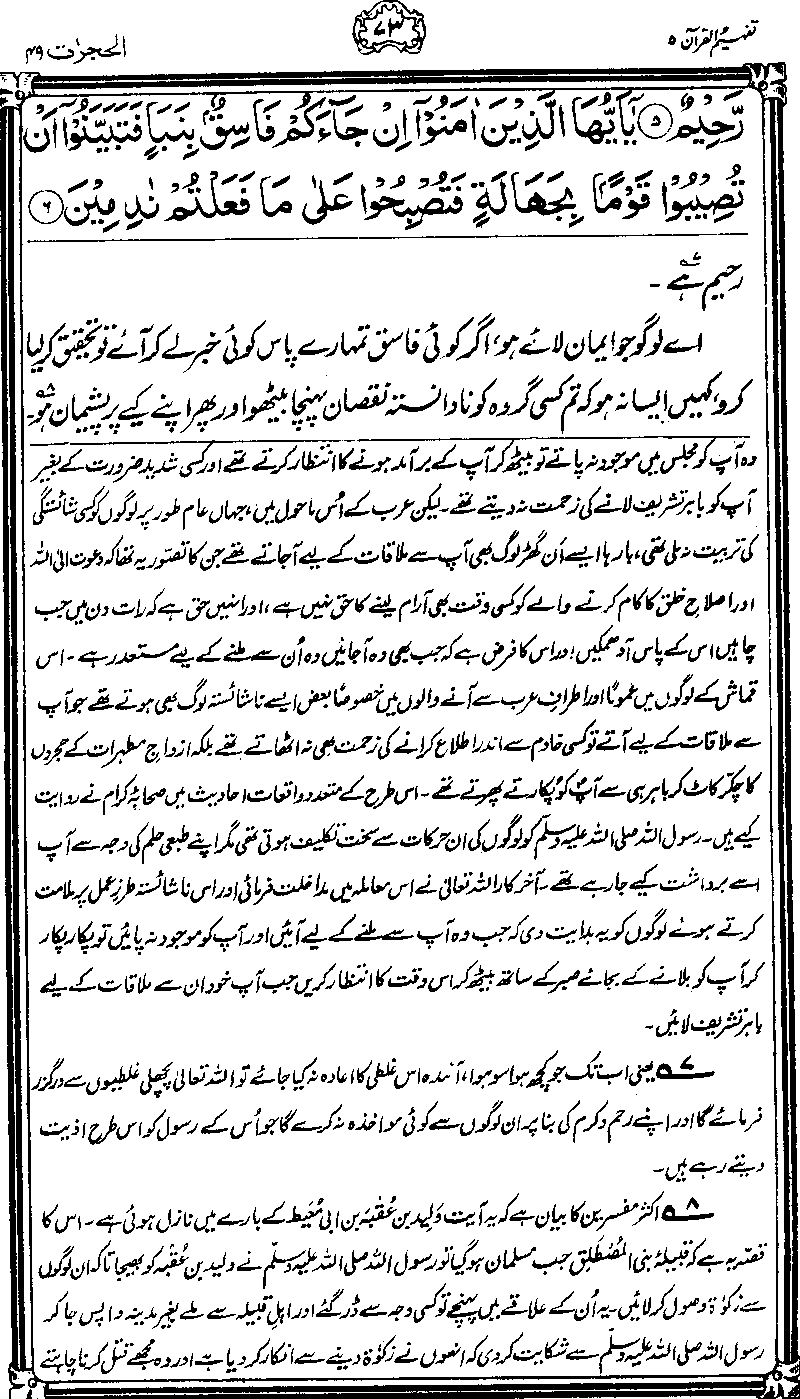 تفہیم القرآن ۵
۷۳
الحجرات ۴۹
رَّحِيْمٌ ۝۵ يٰۤاَيُّهَا الَّذِيْنَ اٰمَنُوْۤا اِنْ جَآءَكُمْ فَاسِقٌۢ بِنَبَاٍ فَتَبَيَّنُوْۤا اَنْ
تُصِيْبُوْا قَوْمًۢا بِجَهَالَةٍ فَتُصْبِحُوْا عَلٰى مَا فَعَلْتُمْ نٰدِمِيْنَ ۝۶
رحیم ہے۷ ۔
اے لوگو جو ایمان لائے ہو، اگر کوئی فاسق تمہارے پاس کوئی خبر لے کر آئے تو تحقیق کر لیا
کرو، کہیں ایسا نہ ہو کہ تم کسی گروہ کو نادانستہ نقصان پہنچا بیٹھو اور پھر اپنے کیے پر پشیمان ہو۸۔
وہ آپ کو مجلس میں موجود نہ پاتے تو بیٹھ کر آپ کے برآمد ہونے کا انتظار کرتے تھے اور کسی شدید ضرورت کے بغیر
آپ کو باہر تشریف لانے کی زحمت نہ دیتے تھے۔ لیکن عرب کے اُس ماحول میں، جہاں عام طور پر لوگوں کو کسی شائستگی
کی تربیت نہ ملی تھی، بارہا ایسے اَن گھڑ لوگ بھی آپ سے ملاقات کے لیے آجاتے تھے جن کا تصور یہ تھا کہ دعوت الی اللہ
اور اصلاحِ خلق کا کام کرنے والے کو کسی وقت بھی آرام لینے کا حق نہیں ہے، اور انہیں حق ہے کہ رات دن میں جب
چاہیں اس کے پاس آ دھمکیں اور اس کا فرض ہے کہ جب بھی وہ آجائیں وہ اُن سے ملنے کے لیے مستعد رہے۔ اس
قماش کے لوگوں میں عموماً اور اطرافِ عرب سے آنے والوں میں خصوصاً بعض ایسے ناشائستہ لوگ بھی ہوتے تھے جو آپ
سے ملاقات کے لیے آتے تو کسی خادم سے اندر اطلاع کرانے کی زحمت بھی نہ اٹھاتے تھے بلکہ ازواجِ مطہرات کے حجروں
کا چکر کاٹ کر باہر ہی سے آپؐ کو پکارتے پھرتے تھے۔ اس طرح کے متعدد واقعات احادیث میں صحابۂ کرام نے روایت
کیے ہیں۔ رسول اللہ صلی اللہ علیہ وسلم کو لوگوں کی ان حرکات سے سخت تکلیف ہوتی تھی مگر اپنے طبعی حلم کی وجہ سے آپ
اسے برداشت کیے جارہے تھے۔ آخر کار اللہ تعالیٰ نے اس معاملہ میں مداخلت فرمائی اور اس ناشائستہ طرزِ عمل پر ملامت
کرتے ہوئے لوگوں کو یہ ہدایت دی کہ جب وہ آپ سے ملنے کے لیے آئیں اور آپ کو موجود نہ پائیں تو پکار پکار
کر آپ کو بلانے کے بجائے صبر کے ساتھ بیٹھ کر اس وقت کا انتظار کریں جب آپ خود ان سے ملاقات کے لیے
باہر تشریف لائیں۔
۷ یعنی اب تک جو کچھ ہوا سو ہوا، آئندہ اس غلطی کا اعادہ نہ کیا جائے تو اللہ تعالیٰ پچھلی غلطیوں سے درگزر
فرمائے گا اور اپنے رحم و کرم کی بنا پر ان لوگوں سے کوئی مواخذہ نہ کرے گا جو اُس کے رسول کو اس طرح اذیت
دیتے رہے ہیں۔
۸ اکثر مفسرین کا بیان ہے کہ یہ آیت وَلید بن عُقبَہ بن ابی مُعَیط کے بارے میں نازل ہوئی ہے۔ اس کا
قصہ یہ ہے کہ قبیلۂ بنی المُصْطَلِق جب مسلمان ہو گیا تو رسول اللہ صلی اللہ علیہ وسلم نے ولید بن عُقبہ کو بھیجا تاکہ ان لوگوں
سے زکوٰۃ وصول کر لائیں۔ یہ اُن کے علاقے میں پہنچے تو کسی وجہ سے ڈر گئے اور اہلِ قبیلہ سے ملے بغیر مدینہ واپس جا کر
رسول اللہ صلی اللہ علیہ وسلم سے شکایت کر دی کہ انھوں نے زکوٰۃ دینے سے انکار کر دیا ہے اور وہ مجھے قتل کرنا چاہتے